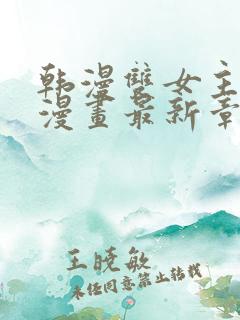 韩漫雙女主
漫畫最新章
王晓敏
未经同意禁止转载